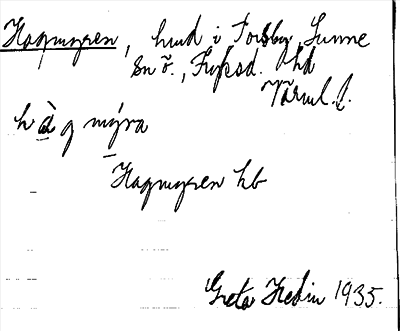 Hagmyren, hmd i Torsby, Sunne
sn ö., Fryksd. hd
Värml. l.
hàg mýra
Hagmyren hb
Greta Hedin 1935.